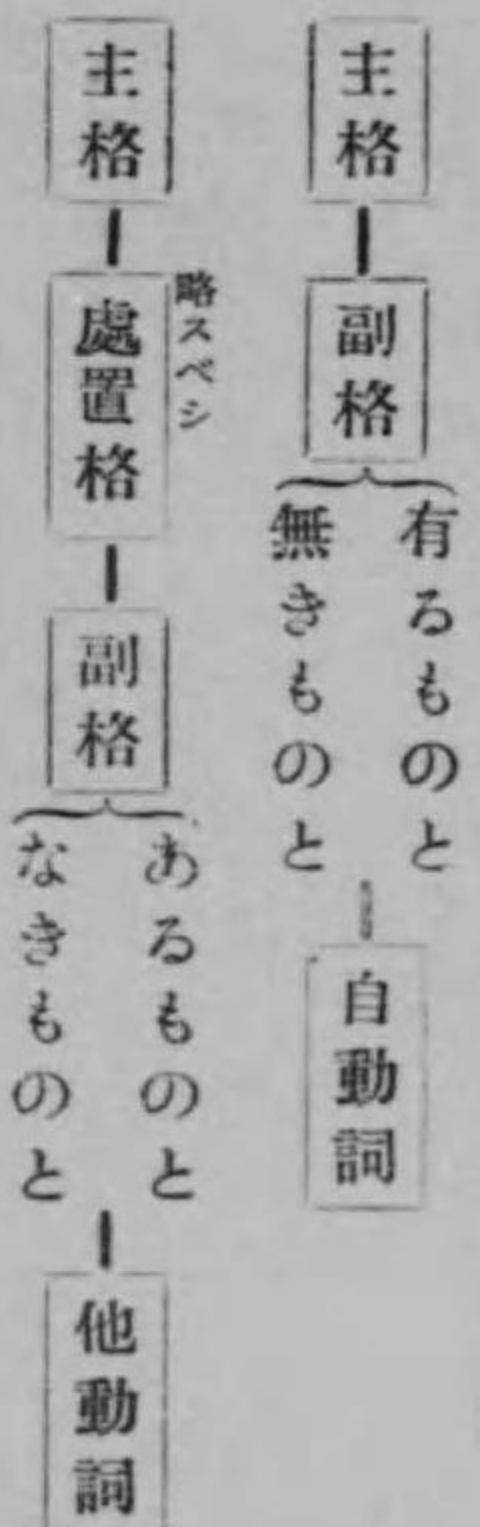 主格
副格
有るものと
無きものと
自動詞
主格
略スベシ
處置格
副格
あるものと
なきものと
他動詞